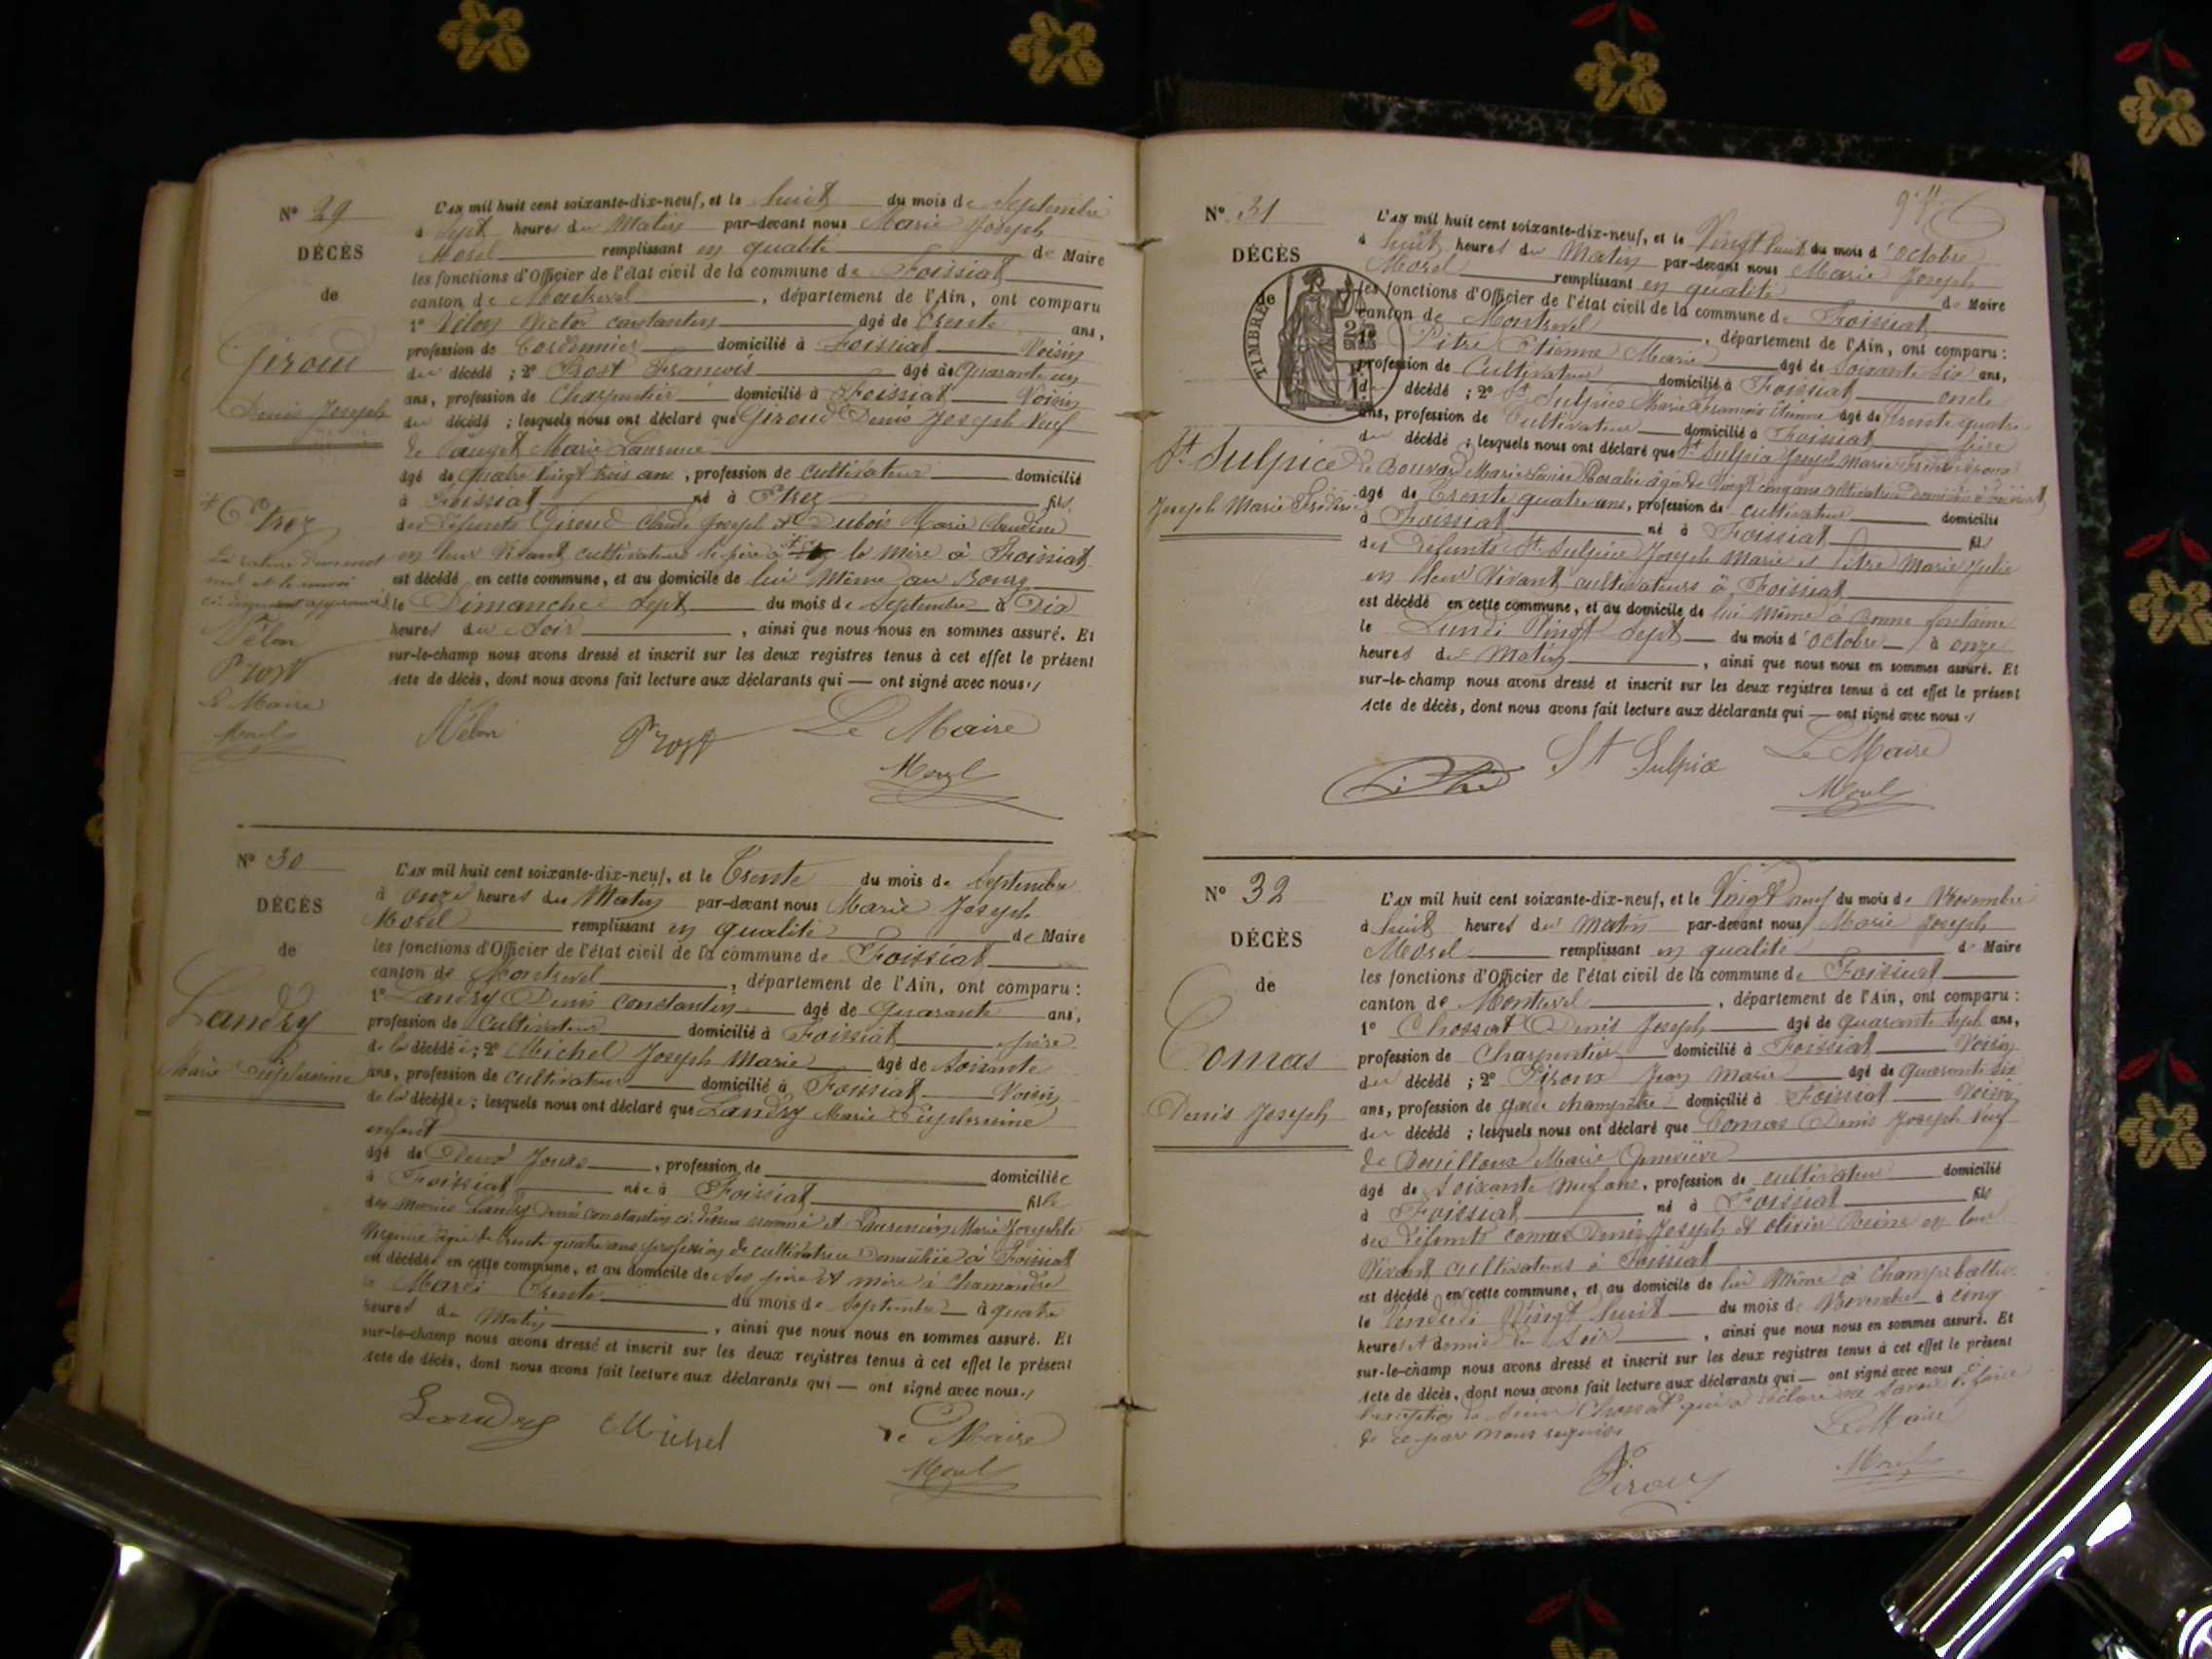 Nº 29
DÉCÈS
de
Giroud
Denis Joseph
L'AN mil huit cent soixante-dix-neuf, et le huit du mois de Septembre
à Sept heures du Matin par-devant nous Marie Joseph
Morel remplissant en qualité de Maire
les fonctions d'Officier de l'état civil de la commune de Foissiat
canton de Montrevel, département de l'Ain, ont comparu
1º Vélon Victor constantin âgé de trente ans,
profession de Cordonnier domicilié à Foissiat Voisin
du décédé ; 2º Prost François âgé de quarante un
ans, profession de Charpentier domicilié à Foissiat Voisin
du décédé ; lesquels nous ont déclaré que Giroud Denis Joseph Veuf
de Marie Laurence
âgé de quatre vingt trois ans, profession de cultivateur domicilié
à Foissiat né à Etrez fils
des Défunts Giroud Claude Joseph et Dubois Marie Claudine
en leur Vivant cultivateurs le père à le mère à Foissiat
est décédé en cette commune, et au domicile de lui Même au Bourg
le Dimanche Sept du mois de Septembre à Dix
heures du Soir, ainsi que nous nous en sommes assuré. Et
sur-le-champ nous avons dressé et inscrit sur les deux registres tenus à cet effet le présent
Acte de décès, dont nous avons fait lecture aux déclarants qui — ont signé avec nous
Etrez
La rature d'un mot
nul et le renvoi
ci approuvés
Vélon
Prost
Le Maire
Morel
Vélon Prost Le Maire
Morel
Nº 30
DÉCÈS
de
Landry
Marie
L'AN mil huit cent soixante-dix-neuf, et le Trente du mois de Septembre
à onze heures du Matin par-devant nous Marie Joseph
Morel remplissant en qualité de Maire
les fonctions d'Officier de l'état civil de la commune de Foissiat
canton de Montrevel, département de l'Ain, ont comparu :
1º Landry Denis constantin âgé de quarante ans,
profession de Cultivateur domicilié à Foissiat père
de la décédée ; 2º Michel Joseph Marie âgé de Soixante
ans, profession de cultivateur domicilié à Foissiat Voisin
de la décédée ; lesquels nous ont déclaré que Landry Marie
enfant
âgé de Deux Jours, profession de domiciliée
à Foissiat née à Foissiat fille
des mariés Landry Denis constantin ci dessus nommé et Marie Josephte
âgée de trente quatre ans profession de cultivatrice Domiciliée à Foissiat
est décédée en cette commune, et au domicile de Ses père et mère à Chamandre
le Mardi Trente du mois de Septembre à quatre
heures du Matin, ainsi que nous nous en sommes assuré. Et
sur-le-champ nous avons dressé et inscrit sur les deux registres tenus à cet effet le présent
Acte de décès, dont nous avons fait lecture aux déclarants qui — ont signé avec nous
Landry Michel Le Maire
Morel
Nº 31
DÉCÈS
de
TIMBRE
St Sulpice
Joseph Marie Frédéric
L'AN mil huit cent soixante-dix-neuf, et le Vingt huit du mois d'octobre
à huit heures du Matin par-devant nous Marie Joseph
Morel remplissant en qualité de Maire
les fonctions d'Officier de l'état civil de la commune de Foissiat
canton de Montrevel, département de l'Ain, ont comparu :
1º Pitre Etienne Marie âgé de Soixante Six ans,
profession de Cultivateur domicilié à Foissiat oncle
du décédé ; 2º St Sulpice Marie François Etienne âgé de trente quatre
ans, profession de Cultivateur domicilié à Foissiat frère
du décédé ; lesquels nous ont déclaré que St Sulpice Joseph Marie Frédéric époux
de Bouvard Marie Louise Rosalie âgée de Vingt cinq ans cultivatrice Domiciliée à Foissiat
âgé de Trente quatre ans, profession de cultivateur domicilié
à Foissiat né à Foissiat fils
des Défunts St Sulpice Joseph Marie et Pitre Marie Julie
en leur Vivant cultivateurs à Foissiat
est décédé en cette commune, et au domicile de lui même à Bonne fontaine
le Lundi Vingt Sept du mois d'octobre à onze
heures du Matin, ainsi que nous nous en sommes assuré. Et
sur-le-champ nous avons dressé et inscrit sur les deux registres tenus à cet effet le présent
Acte de décès, dont nous avons fait lecture aux déclarants qui — ont signé avec nous
Pitre St Sulpice Le Maire
Morel
Nº 32
DÉCÈS
de
Comas
Denis Joseph
L'AN mil huit cent soixante-dix-neuf, et le Vingt neuf du mois de Novembre
à huit heures du Matin par-devant nous Marie Joseph
Morel remplissant en qualité de Maire
les fonctions d'Officier de l'état civil de la commune de Foissiat
canton de Montrevel, département de l'Ain, ont comparu :
1º Chossat Denis Joseph âgé de quarante Sept ans,
profession de Charpentier domicilié à Foissiat Voisin
du décédé ; 2º Piroux Jean Marie âgé de quarante Six
ans, profession de garde champêtre domicilié à Foissiat Voisin
du décédé ; lesquels nous ont déclaré que Comas Denis Joseph Veuf
de Bouilloux Marie Geneviève
âgé de Soixante Neuf ans, profession de cultivateur domicilié
à Foissiat né à Foissiat fils
des Défunts comas Denis Joseph et olivier Reine en leur
Vivant cultivateurs à Foissiat
est décédé en cette commune, et au domicile de lui Même à Champ
le Vendredi Vingt huit du mois de Novembre à cinq
heures et demie du Soir, ainsi que nous nous en sommes assuré. Et
sur-le-champ nous avons dressé et inscrit sur les deux registres tenus à cet effet le présent
Acte de décès, dont nous avons fait lecture aux déclarants qui — ont signé avec nous à
l'exception du Sieur Chossat qui a déclaré ne Savoir le faire
de ce par nous requis
Le Maire
Piroux Morel